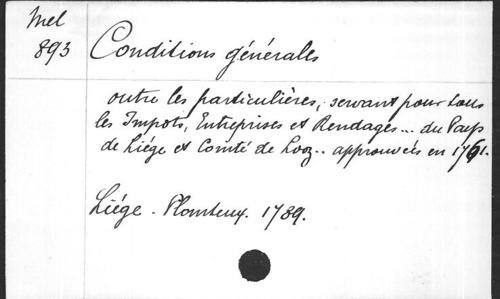 Mel
893
Conditions générales
outre les particulières, servant pour tous
les Impots, Entreprises et Rendages... du Pays
de Liége et Comté de Looz.. approuvées en 1761.
Liége. Plomteux. 1789.